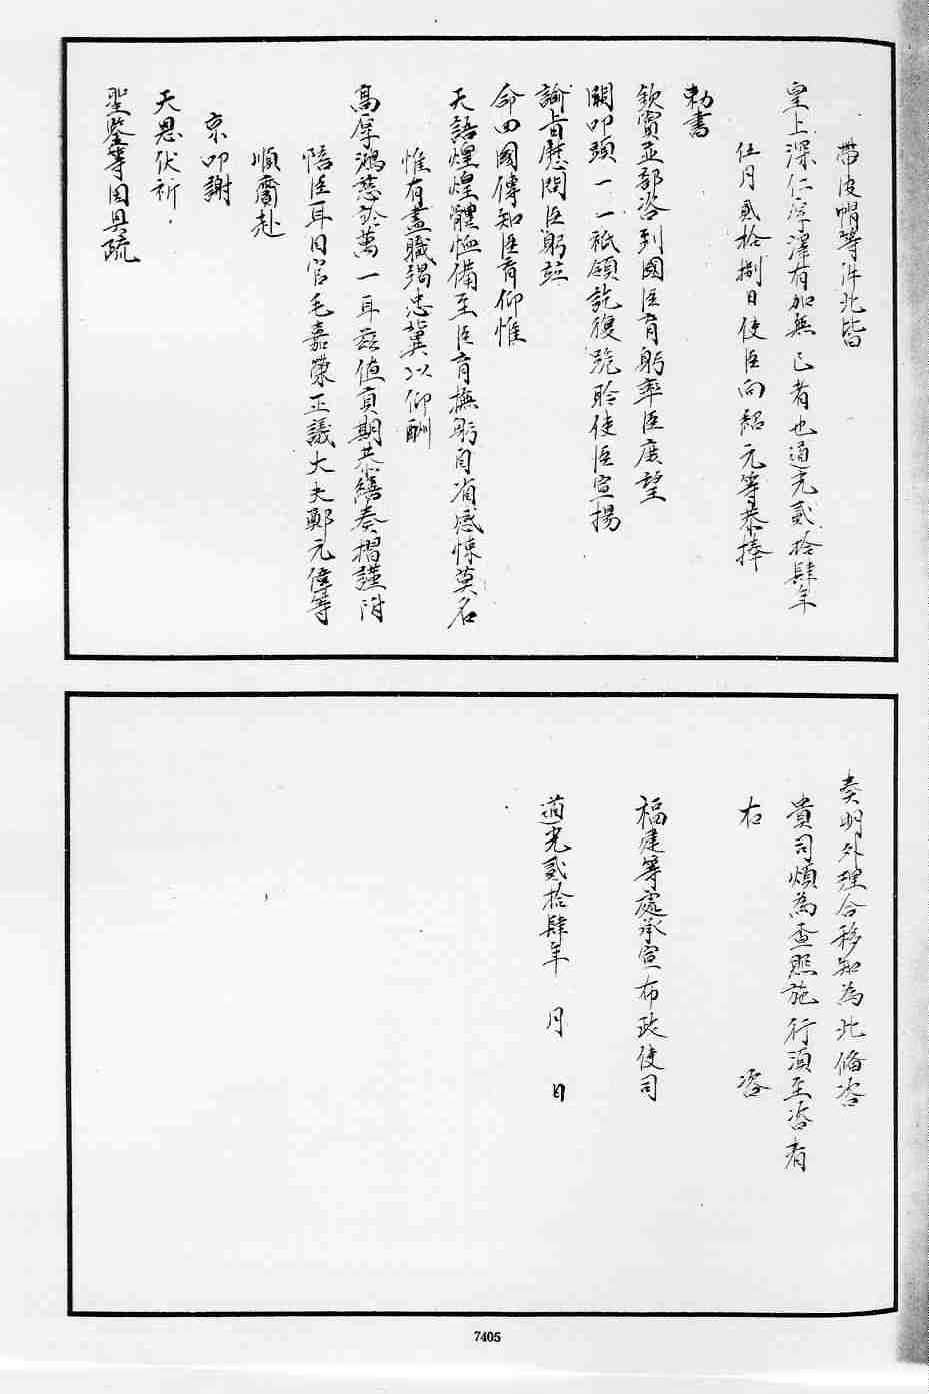 帶皮帽等件此皆
皇上深仁厚澤有加無已者也道光貳拾肆年
伍月貳拾捌日使臣向紹元等恭捧
勅書
欽賞並部咨到國臣育躬率臣庶望
闕叩頭一一祗領訖復跪聆使臣宣揚
諭旨慰問臣躬竝
命回國傳知臣育仰惟
天語煌煌體恤備至臣育撫躬自省感悚莫名
惟有盡職竭忠冀以仰酬
高厚鴻慈於萬一耳茲值貢期恭繕奏摺謹附
陪臣耳目官毛嘉榮正議大夫鄭元偉等
順齎赴
京叩謝
天恩伏祈
聖鑒等因具疏
奏明外理合移知為此備咨
貴司煩為查照施行須至咨者
右　咨
福建等處承宣布政使司
道光貳拾肆年　月　日
7405